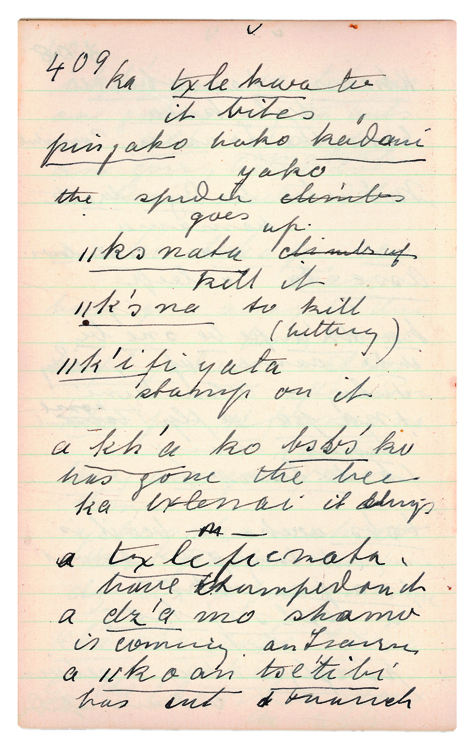 409 ka txlekwa te
it bites
pingako nako kadani
yako
the spider climbs
goes up.
"ks nata climbs up
kill it
"k's na to kill
(hitting)
"k'i fi yata
stamp on it
a kk'a ko bsbs' ko
has gone the bee
ka txlenai it clings
a txle fiemata.
have thumped on it
a dz'a mo shamo
is coming
a "ko an tsetibi
has cut a branch